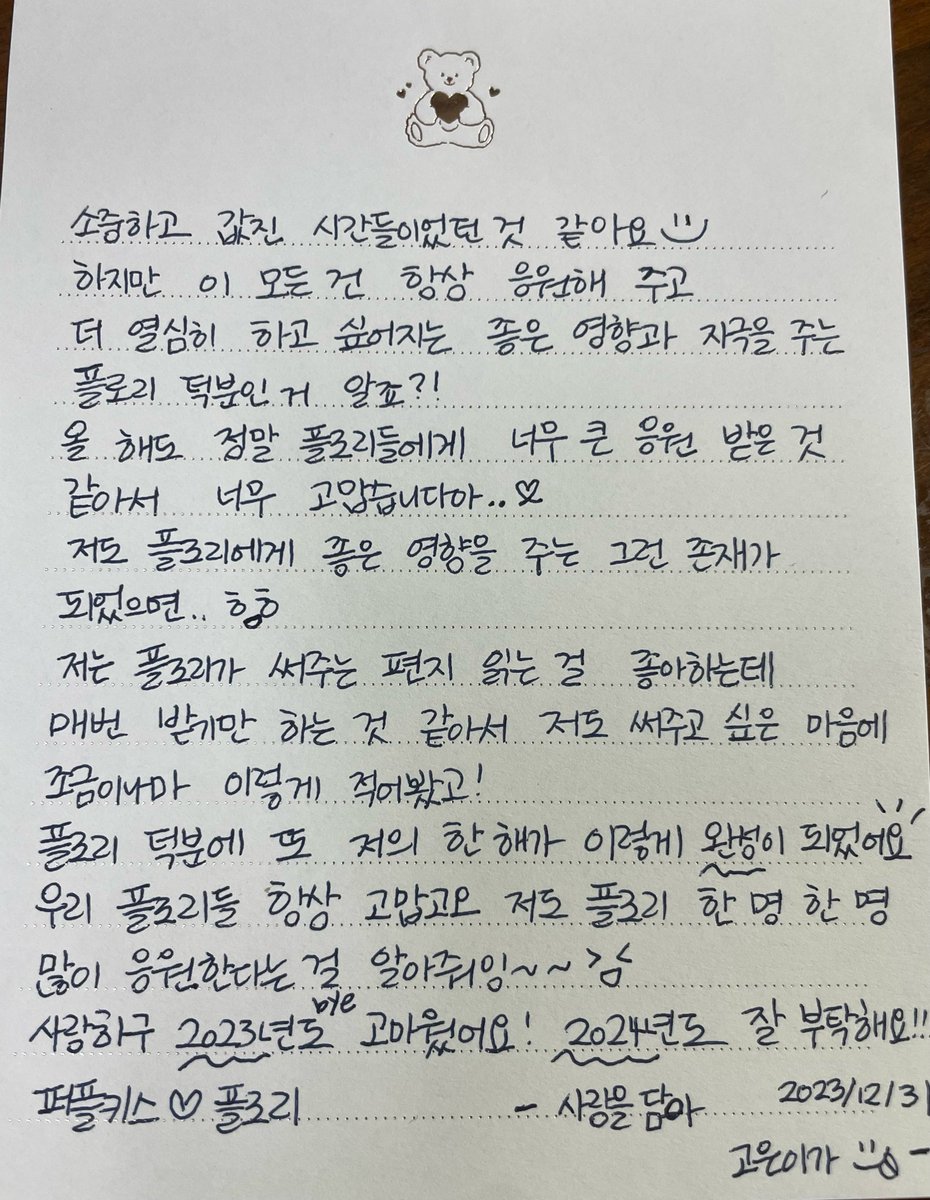 소중하고 값진 시간들이었던 것 같아요
하지만 이 모든 건 항상 응원해 주고
더 열심히 하고 싶어지는 좋은 영향과 자극을 주는
플로리 덕분인 거 알죠?!
올 해도 정말 플로리들에게 너무 큰 응원 받은 것
같아서 너무 고맙습니다아..♡
저도 플로리에게 좋은 영향을 주는 그런 존재가
되었으면.. ㅎㅎ
저는 플로리가 써주는 편지 읽는 걸 좋아하는데
매번 받기만 하는 것 같아서 저도 써주고 싶은 마음에
조금이나마 이렇게 적어봤고!
플로리 덕분에 또 저의 한 해가 이렇게 완성이 되었어요
우리 플로리들 항상 고맙고요 저도 플로리 한 명 한 명
많이 응원한다는 걸 알아줘잉~~ >ㅅ<
사랑하구 2023년도 bye 고마웠어요! 2024년도 잘 부탁해요!!
퍼플키스♡플로리 - 사랑을 담아 2023/12/31
고은이가 -